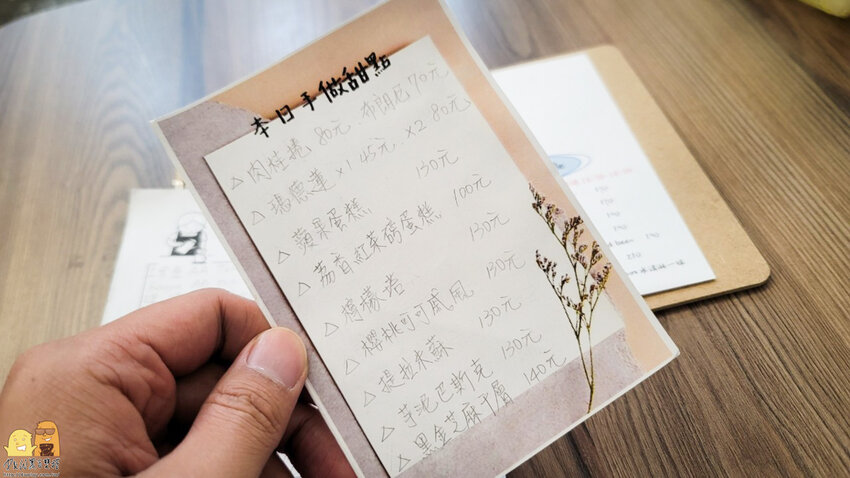 本日手做甜點
△肉桂捲 80元、布朗尼70元
△瑪德蓮 x1 45元、x2 80元
△蘋果蛋糕 130元
△荔香紅茶磅蛋糕 100元
△檸檬塔 130元
△櫻桃可可戚風 130元
△提拉米蘇 130元
△芋泥巴斯克 130元
△黑金芝麻千層 140元